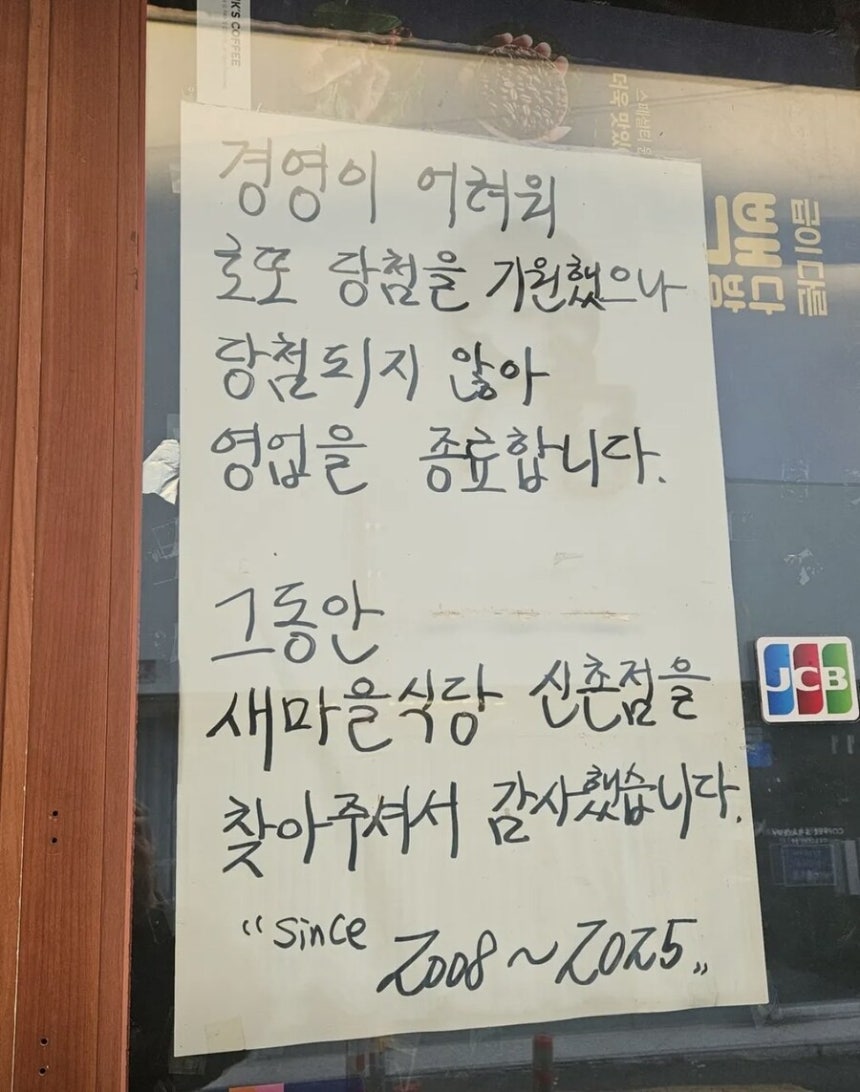 K'S COFFEE
더욱 맛있
스페셜티
급이 다른
빽다방
경영이 어려워
로또 당첨을 기원했으나
당첨되지 않아
영업을 종료합니다.
그동안
새마을식당 신촌점을
찾아주셔서 감사했습니다.
“since 2008~2025„
JCB